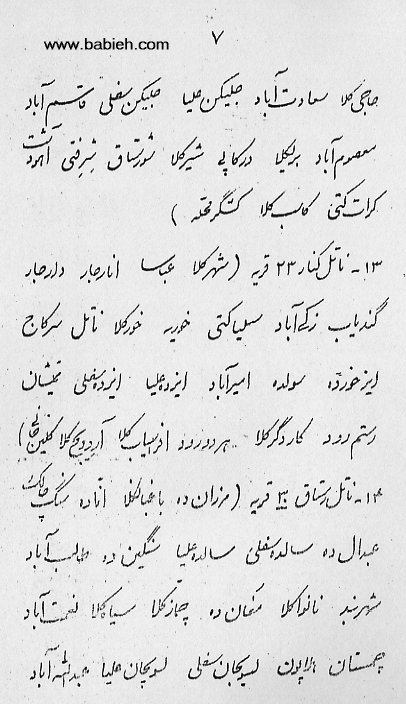 www.babieh.com
۷
حاجی کلا سعادت آباد جلیکن علیا جلیکن سفلی قاسم آباد
معصوم آباد بریکلا درکاپی شیرکلا شورستاق شرفتی آهودشت
کرات کتی کاسب کلا کشتگر محله )
۱۳ - ناتل کنار ۲۳ قریه ( شهرکلا عباسا انارجار دارجار
گندیاب زکی آباد سلیاکتی خوریه خورکلا ناتل سرکاج
ایزخورده سولده امیرآباد ایزده علیا ایزده سفلی تمیشان
رستم رود کاردگرکلا هردورود افراسیاب کلا
۱۴ - ناتل رستاق ۳۰ قریه ( مرزان ده باغبانکلا
عبدال ده سالده سفلی سالده علیا سنگین ده طالب آباد
شهربند نانواکلا مغان ده چمازکلا سیاه کلا نعمت آباد
چمستان هلاپون لسویجان سفلی لسویجان علیا عبدالله آباد